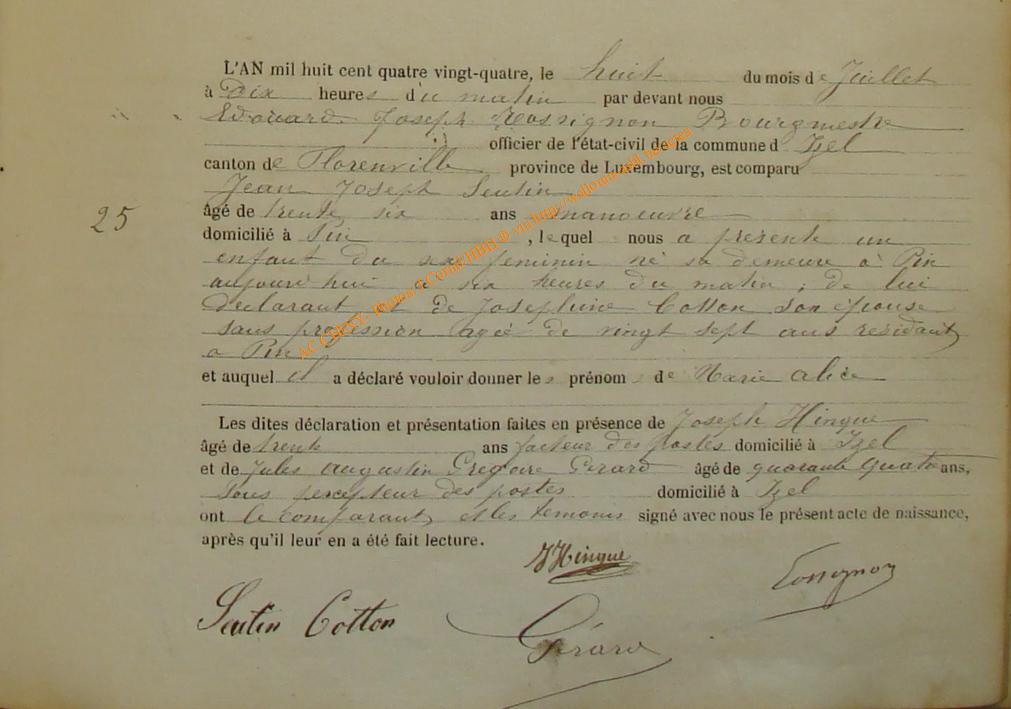 L'AN mil huit cent quatre vingt-quatre, le huit du mois de Juillet
à dix heures du matin par devant nous
Edouard Joseph Rossignon Bourgmestre
officier de l'état-civil de la commune d Izel
canton de Florenville province de Luxembourg, est comparu
Jean Joseph Seutin
âgé de trente six ans manoeuvre
25
domicilié à Pin , lequel nous a présenté un
enfant du sexe feminin né sa demeure à Pin
aujourd'hui à six heures du matin, de lui
declarant et de Josephine Cotton son épouse
sans profession agée de vingt sept ans residant
a Pin
et auquel il a déclaré vouloir donner les prénoms de Marie Alice
Les dites déclaration et présentation faites en présence de Joseph Hingue
âgé de trente ans facteur des postes domicilié à Izel
et de Jules Augustin Gregoire Gerard âgé de quarante quatre ans,
sous percepteur des postes domicilié à Izel
ont le comparant et les temoins signé avec nous le présent acte de naissance,
après qu'il leur en a été fait lecture.
JHingue
Rossignon
Seutin Cotton
Gérard